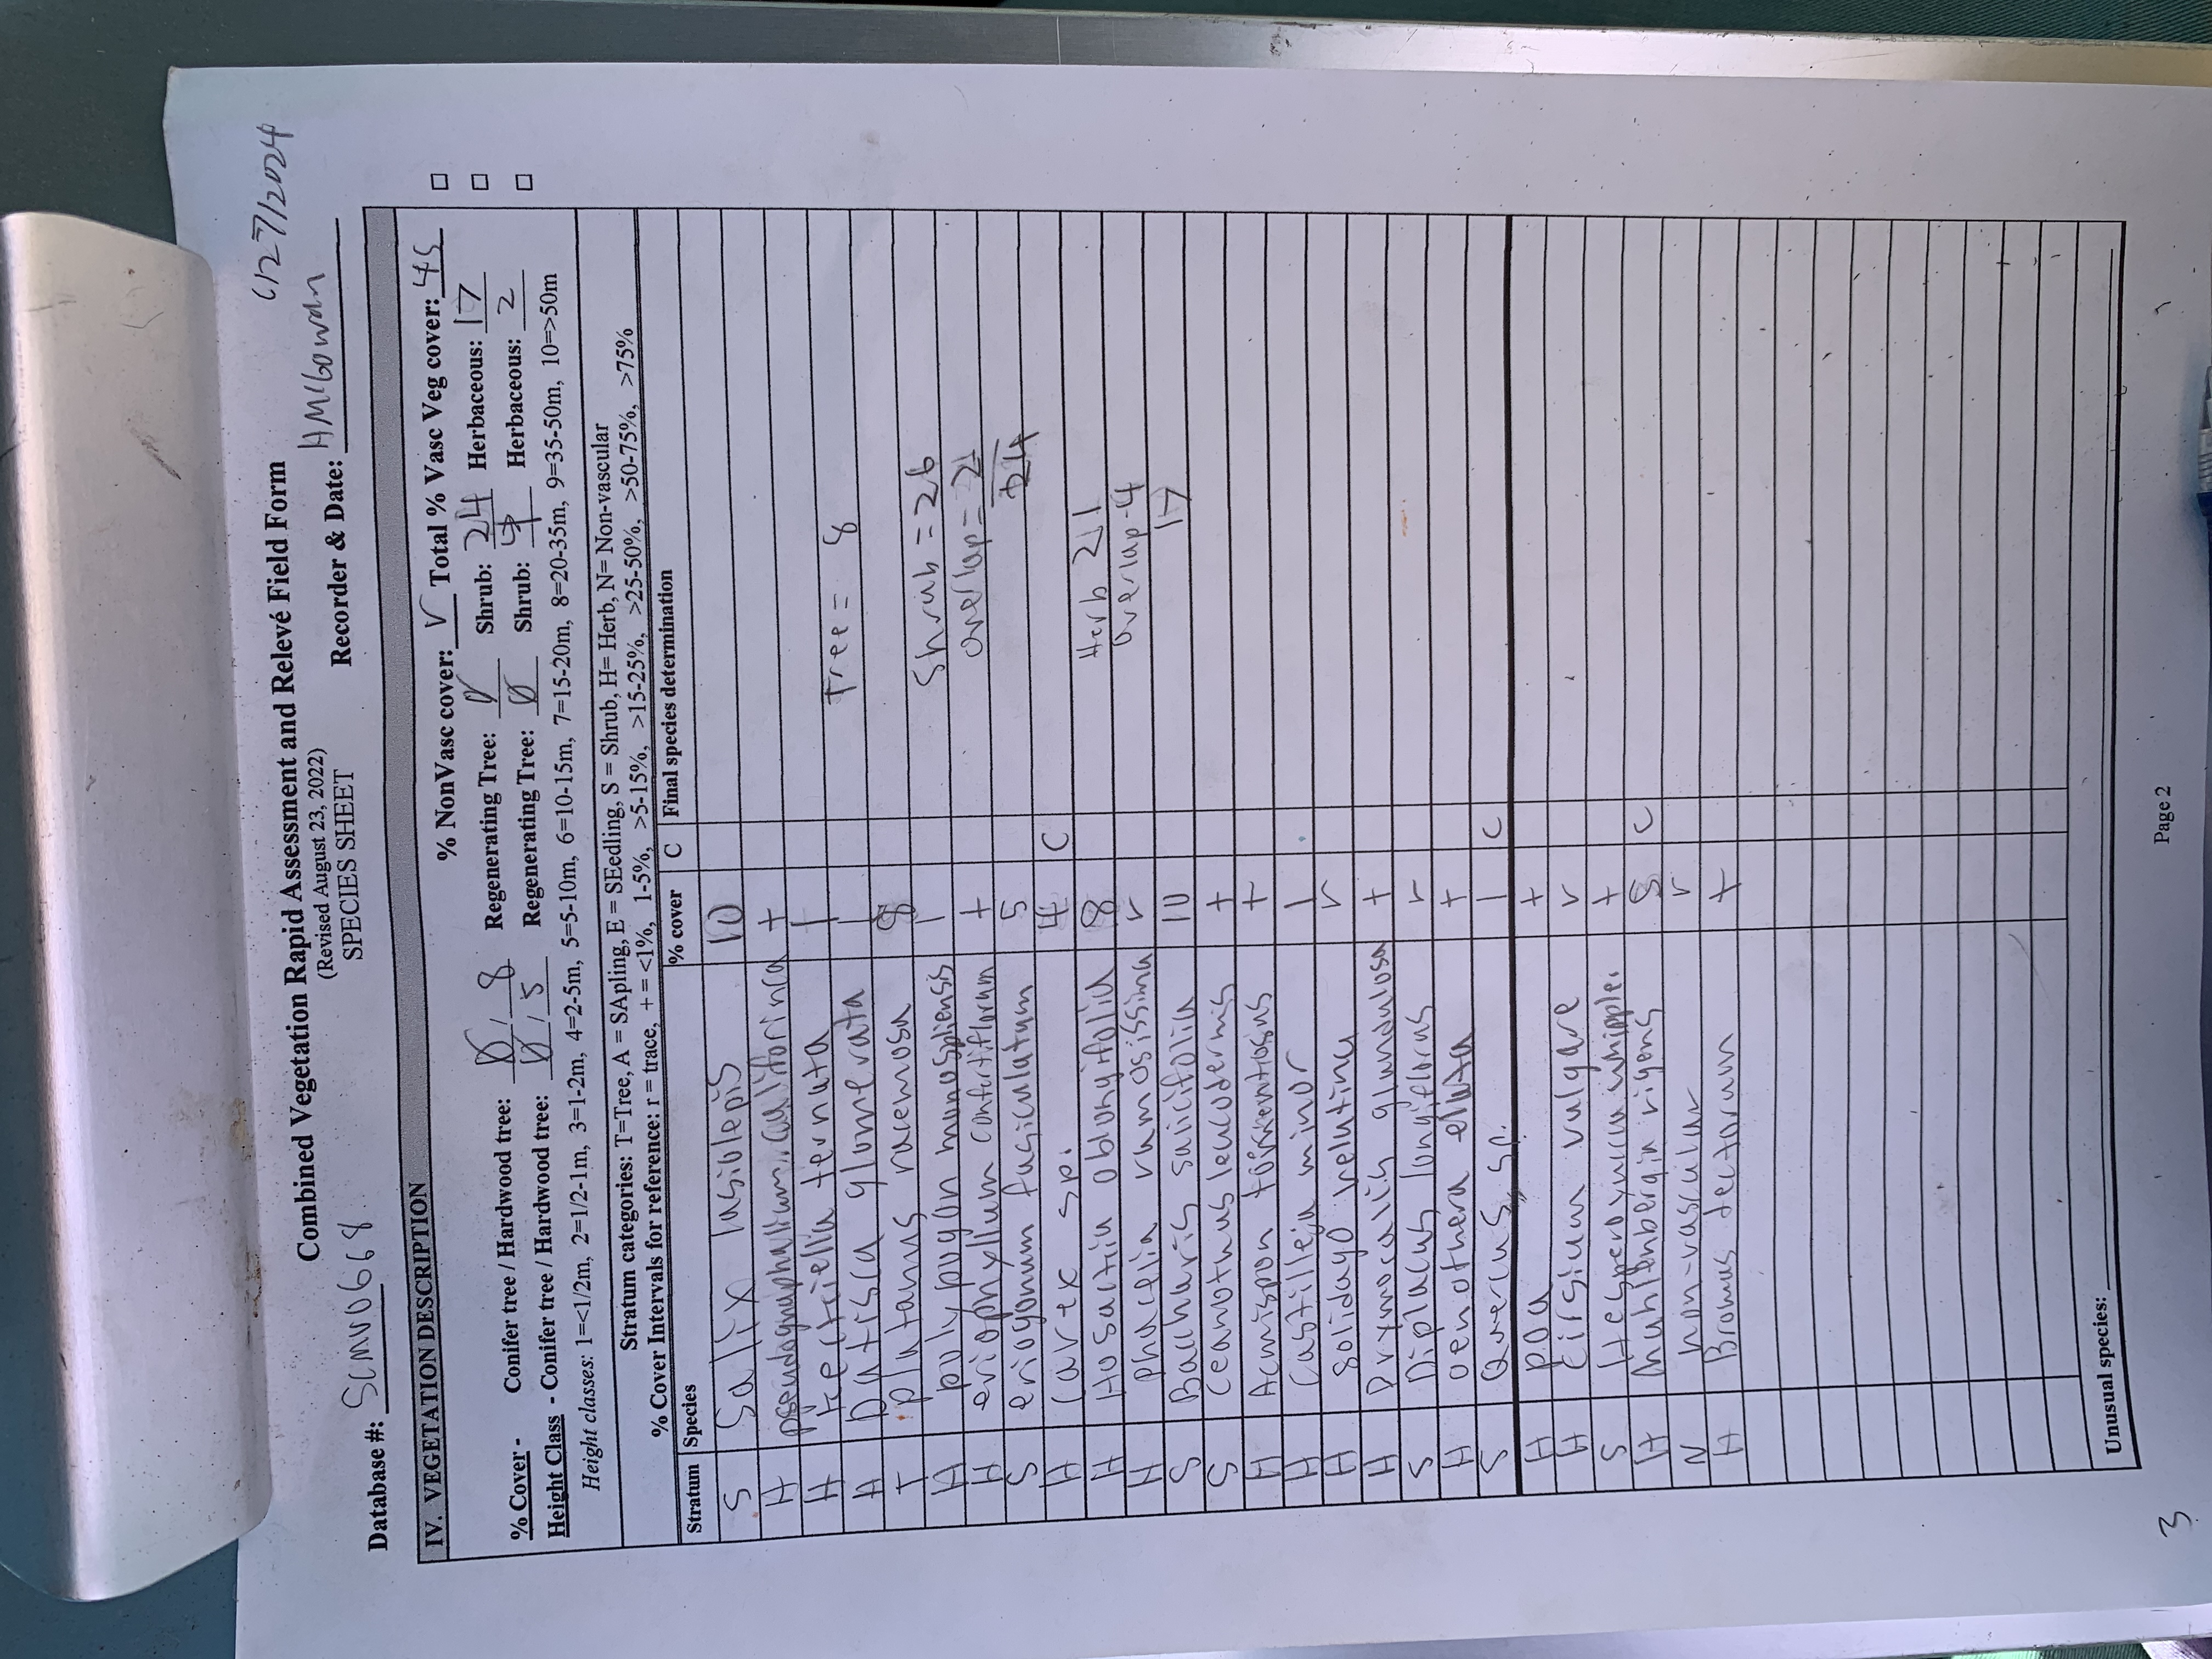 Combined Vegetation Rapid Assessment and Relevé Field Form
(Revised August 23, 2022)
SPECIES SHEET
6/27/2024
Database #: SCMV0668 Recorder & Date: HMcGowan
IV. VEGETATION DESCRIPTION
% NonVasc cover: r Total % Vasc Veg cover: 45 □
% Cover - Conifer tree / Hardwood tree: Ø / 8 Regenerating Tree: Ø Shrub: 24 Herbaceous: 17 □
Height Class - Conifer tree / Hardwood tree: Ø / 5 Regenerating Tree: Ø Shrub: 4 Herbaceous: 2 □
Height classes: 1=<1/2m, 2=1/2-1m, 3=1-2m, 4=2-5m, 5=5-10m, 6=10-15m, 7=15-20m, 8=20-35m, 9=35-50m, 10=>50m
Stratum categories: T=Tree, A = SApling, E = SEedling, S = Shrub, H= Herb, N= Non-vascular
% Cover Intervals for reference: r = trace, + = <1%, 1-5%, >5-15%, >15-25%, >25-50%, >50-75%, >75%
Stratum Species % cover C Final species determination
S Salix lasiolepis 10
H pseudognaphalium californica +
H ternuta 1
H Datisca glomerata 1 Tree = 8
T platanus racemosa 8
H polypogon monspliensis 1 Shrub = 26
H eriophyllum confertiflorum + overlap = 2
S eriogonum fasciculatum 5 24
H Carex sp. 4 C
H Hosackia oblongifolia 8 Herb 21
H phacelia ramosissima r overlap - 4
S Baccharis salicifolia 10 17
S ceanothus leucodermis +
H Acmispon +
H Castilleja minor 1
H solidago velutina r
H Drymocallis glandulosa +
S Diplacus longiflorus r
H oenothera elata +
S Quercus sp. 1 C
H poa +
H Cirsium vulgare r
S Hesperoyucca whipplei +
H Muhlenbergia rigens 8 C
N non-vascular r
H Bromus tectorum +
Unusual species:
Page 2
3